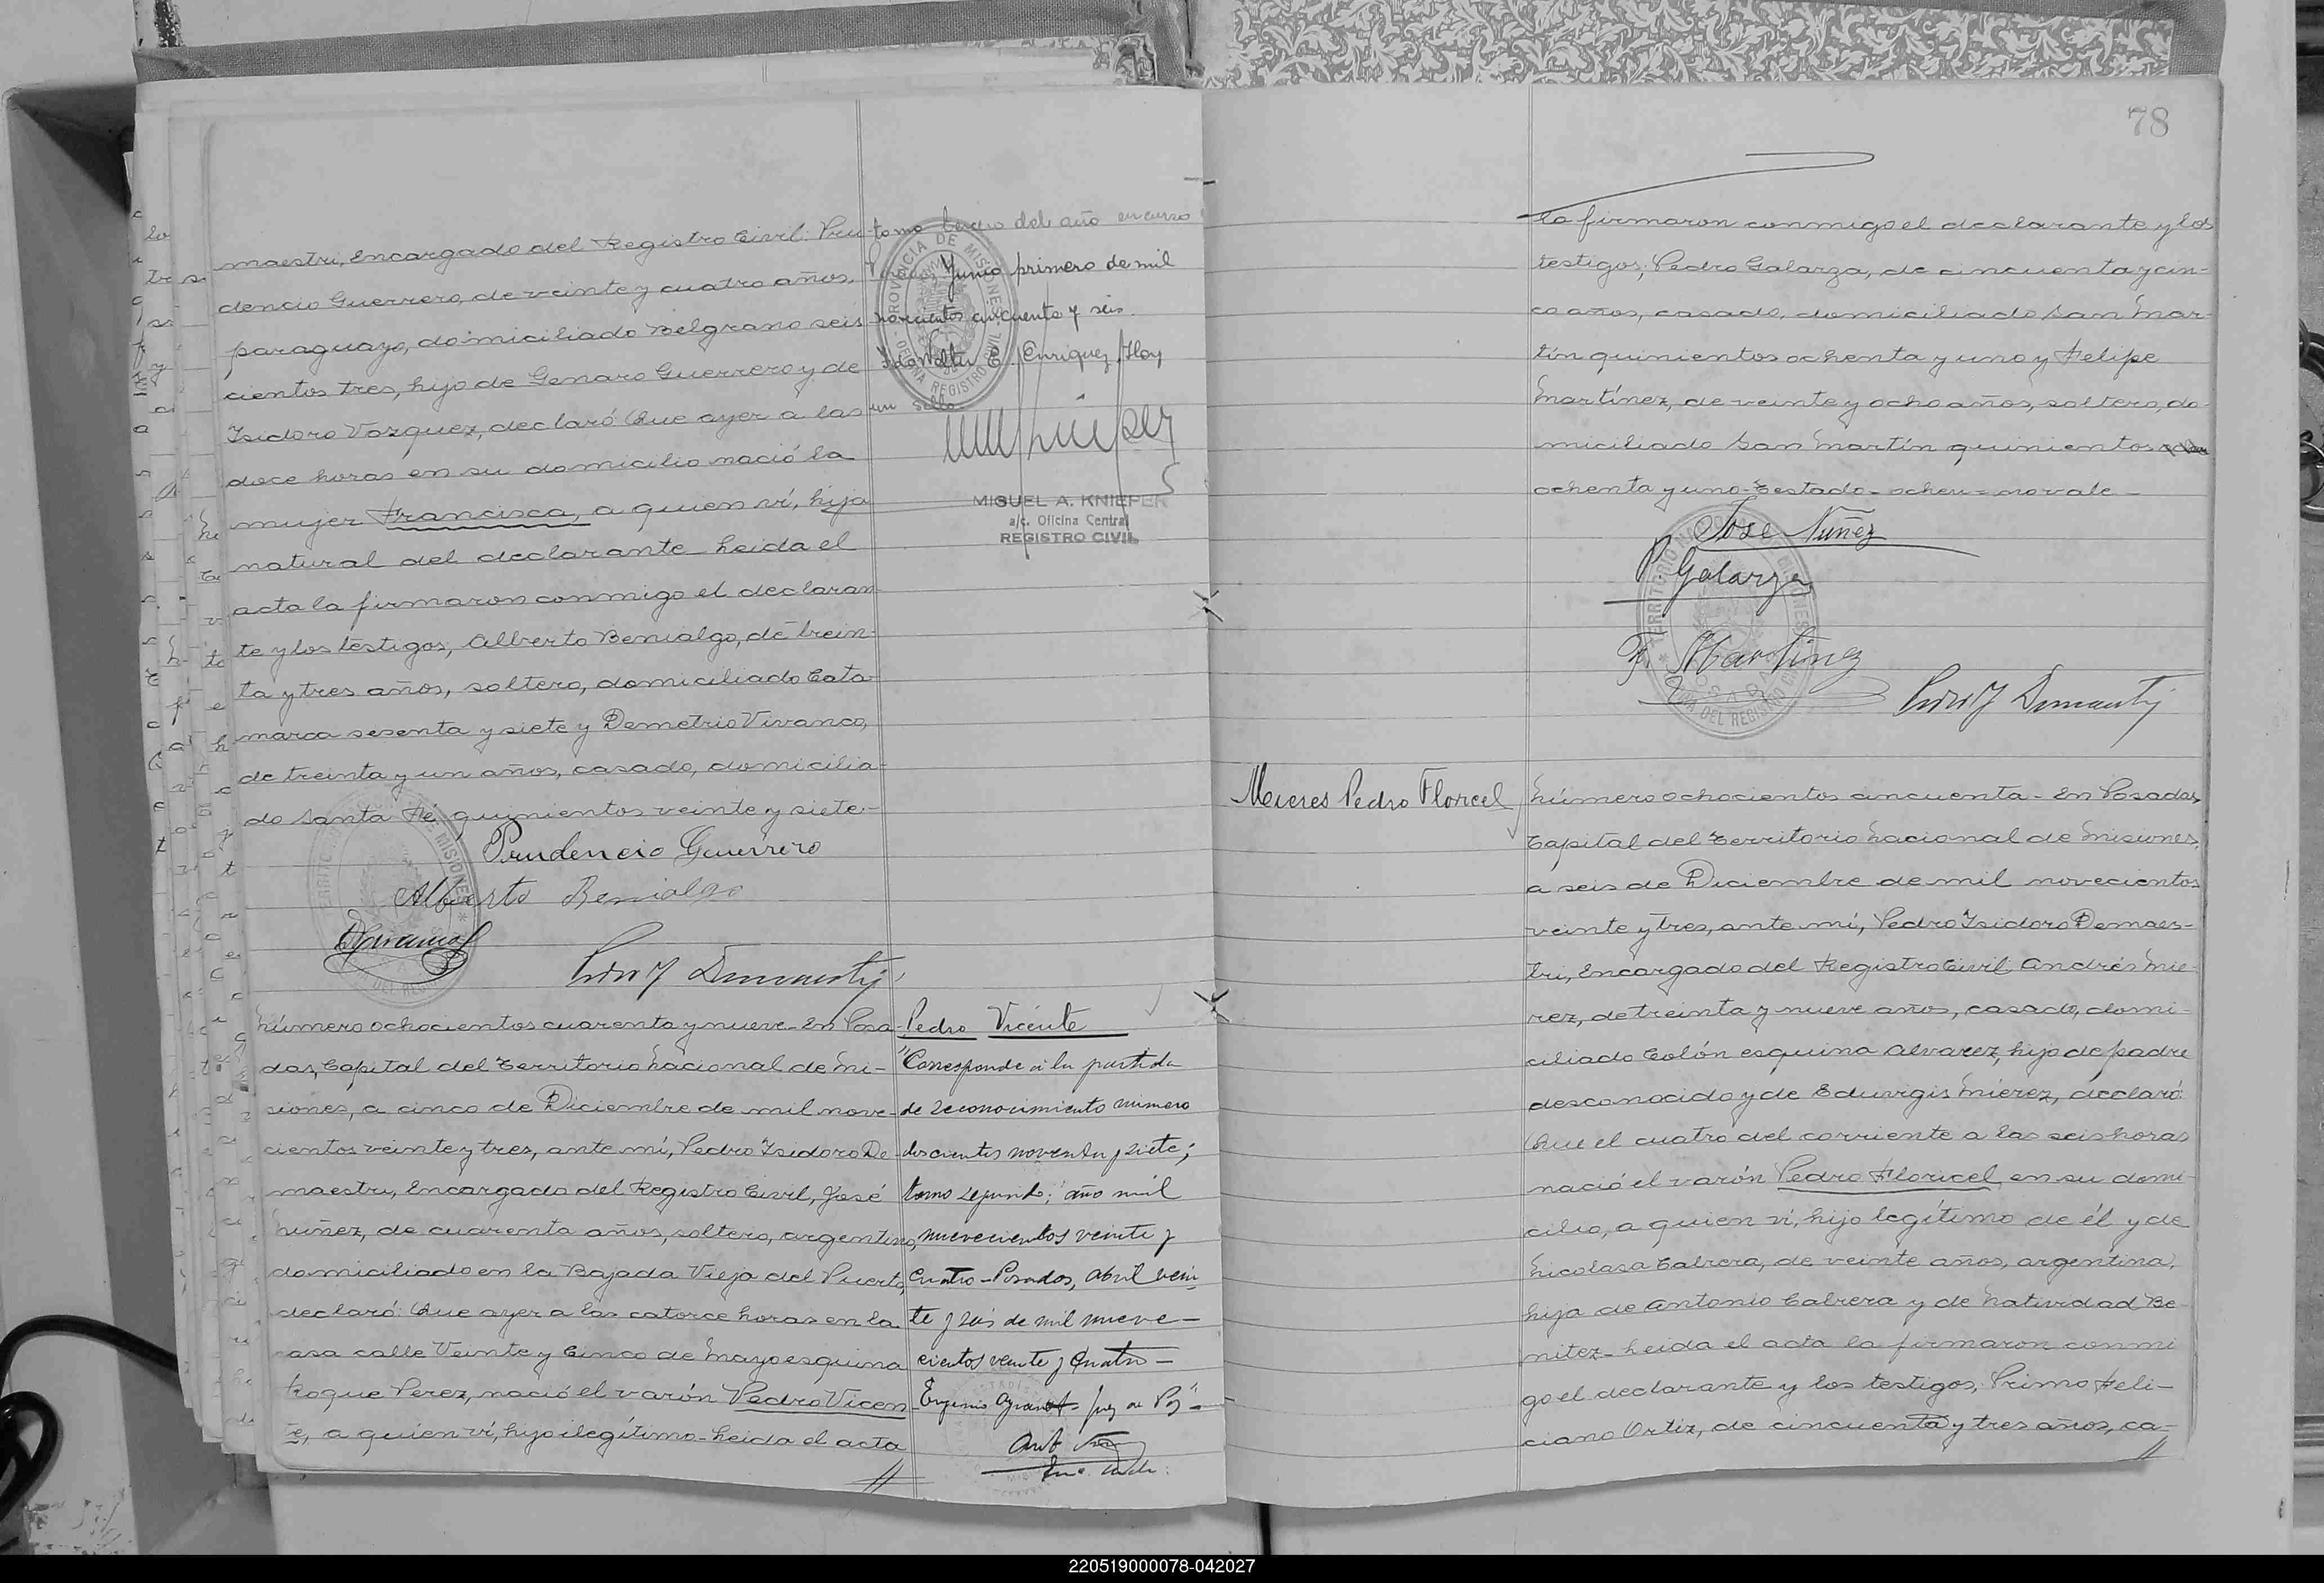 maestri, Encargado del Registro Civil: Pru-
dencio Guerrero, de veinte y cuatro años,
paraguayo, domiciliado Belgrano seis
cientos tres, hijo de Genaro Guerrero y de
Isidora Vazquez, declaró: Que ayer a las
doce horas en su domicilio nació la
mujer Francisca, a quien ví, hija
natural del declarante. Leida el
acta la firmaron conmigo el declaran-
te y los testigos, Alberto Benialgo, de trein-
ta y tres años, soltero, domiciliado Cata-
marca sesenta y siete y Demetrio Vivanco,
de treinta y un años, casado, domicilia-
do Santa Fé quinientos veinte y siete.-
Prudencio Guerrero
Alberto Benialgo
tomo del año en curso
Junio primero de mil
novecientos cincuenta y seis.
Enriquez Hay
un sello
PROVINCIA DE MISIONES
MIGUEL A. KNIEPER
a/c. Oficina Central
REGISTRO CIVIL
Número ochocientos cuarenta y nueve - En Posa-
das, Capital del Territorio Nacional de Mi-
siones, a cinco de Diciembre de mil nove-
cientos veinte y tres, ante mí, Pedro Isidoro De-
maestri, Encargado del Registro Civil, José
Nuñez, de cuarenta años, soltero, argentino,
domiciliado en la Bajada Vieja del Puerto,
declaró: Que ayer a las catorce horas en la
casa calle Veinte y Cinco de Mayo esquina
Roque Perez, nació el varón Pedro Vicen
te, a quien ví, hijo ilegítimo - Leida el acta
Pedro Vicente
"Corresponde a la partida
de reconocimiento número
doscientos noventa y siete;
tomo segundo; año mil
nuevecientos veinte y
cuatro - Posadas, Abril vein
te y seis de mil nueve-
cientos veinte y cuatro -
78
la firmaron conmigo el declarante y los
testigos, Pedro Galarza, de cincuenta y cin-
co años, casado, domiciliado San Mar-
tín quinientos ochenta y uno y Felipe
Martínez, de veinte y ocho años, soltero, do
miciliado San Martín quinientos
ochenta y uno - Testado - ochen = no vale -
Jose Nuñez
P. Galarza
F. Martinez
Pedro I Demaestri
Mieres Pedro Floricel
Número ochocientos cincuenta - En Posadas,
Capital del Territorio Nacional de Misiones,
a seis de Diciembre de mil novecientos
veinte y tres, ante mí, Pedro Isidoro Demaes-
tri, Encargado del Registro Civil; Andrés Mie-
rez, de treinta y nueve años, casado, domi-
ciliado Colón esquina Alvarez, hijo de padre
desconocido y de Eduvigis Miérez, declaró:
Que el cuatro del corriente a las seis horas
nació el varón Pedro Floricel en su domi-
cilio, a quien ví, hijo legítimo de él y de
Nicolasa Cabrera, de veinte años, argentina,
hija de Antonio Cabrera y de Natividad Be-
nitez - Leida el acta la firmaron conmi
go el declarante y los testigos, Primo Feli-
ciano Ortiz, de cincuenta y tres años, ca-
220519000078-042027